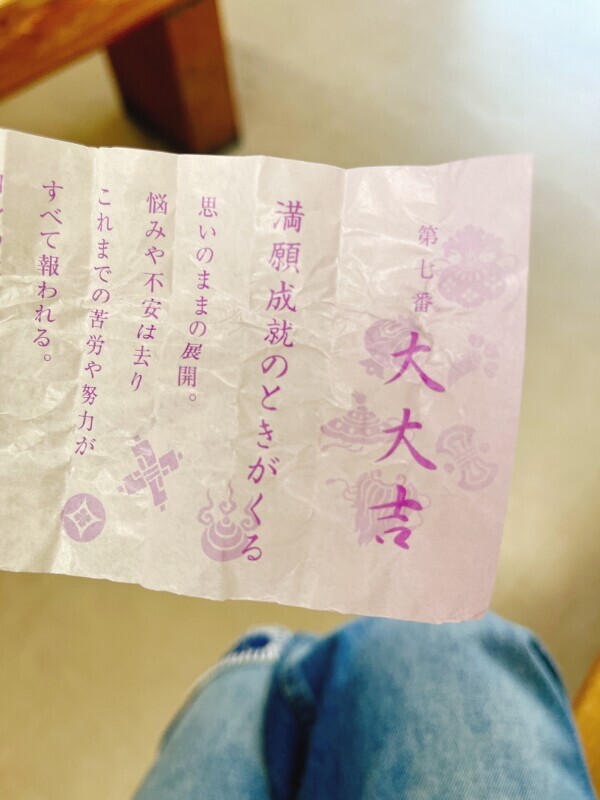 第七番
大大吉
満願成就のときがくる
思いのままの展開。
悩みや不安は去り
これまでの苦労や努力が
すべて報われる。